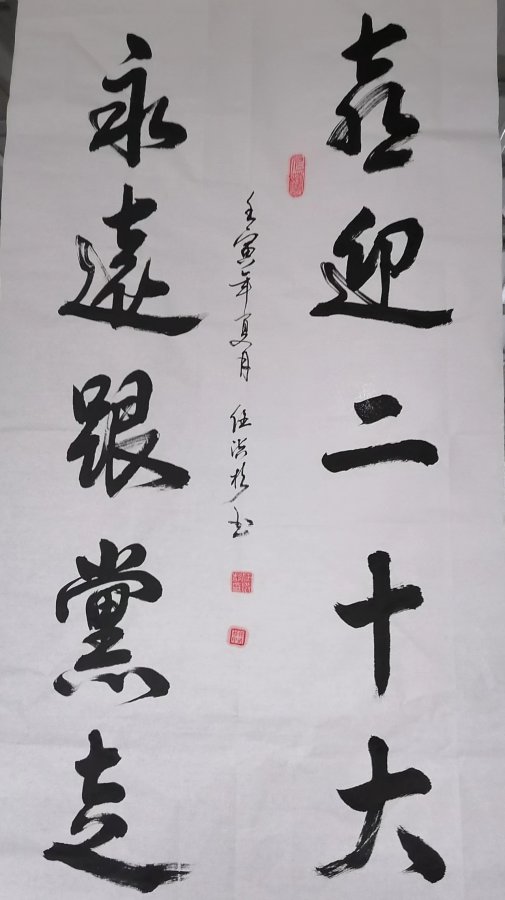 喜迎二十大
永遠跟黨走
壬寅年夏月 任洪攸书